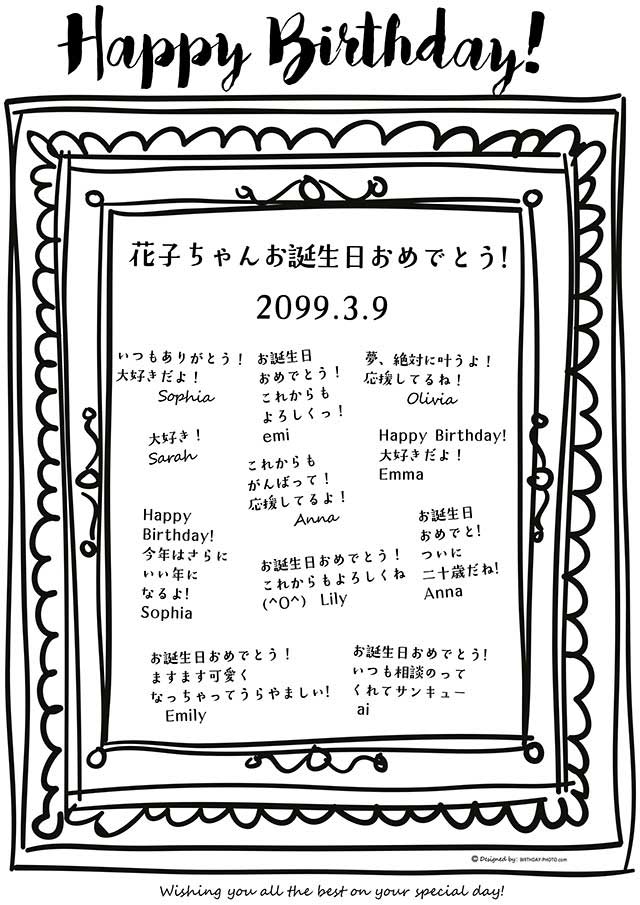 Happy Birthday!
花子ちゃんお誕生日おめでとう!
2099.3.9
いつもありがとう！
大好きだよ！
Sophia
お誕生日
おめでとう！
これからも
よろしくっ！
emi
夢、絶対に叶うよ！
応援してるね！
Olivia
大好き！
Sarah
これからも
がんばって！
応援してるよ！
Anna
Happy Birthday!
大好きだよ！
Emma
Happy
Birthday!
今年はさらに
いい年に
なるよ!
Sophia
お誕生日おめでとう！
これからもよろしくね
(^O^) Lily
お誕生日
おめでと!
ついに
二十歳だね!
Anna
お誕生日おめでとう！
ますます可愛く
なっちゃってうらやましい!
Emily
お誕生日おめでとう!
いつも相談のって
くれてサンキュー
ai
© Designed by: BIRTHDAY-PHOTO.com
Wishing you all the best on your special day!